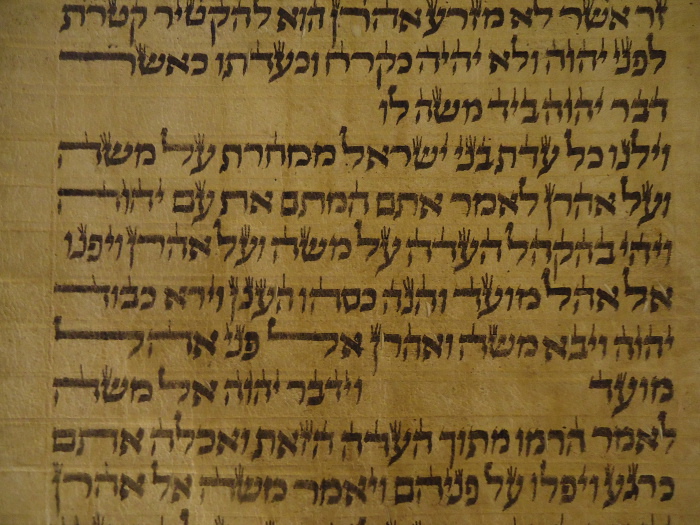 זר אשר לא מזרע אהרן הוא להקטיר קטרת
לפני יהוה ולא יהיה כקרח וכעדתו כאשר
דבר יהוה ביד משה לו
וילנו כל עדת בני ישראל ממחרת על משה
ועל אהרן לאמר אתם המתם את עם יהוה
ויהי בהקהל העדה על משה ועל אהרן ויפנו
אל אהל מועד והנה כסהו הענן וירא כבוד
יהוה ויבא משה ואהרן אל פני אהל
מועד וידבר יהוה אל משה
לאמר הרמו מתוך העדה הזאת ואכלה אתם
כרגע ויפלו על פניהם ויאמר משה אל אהרן